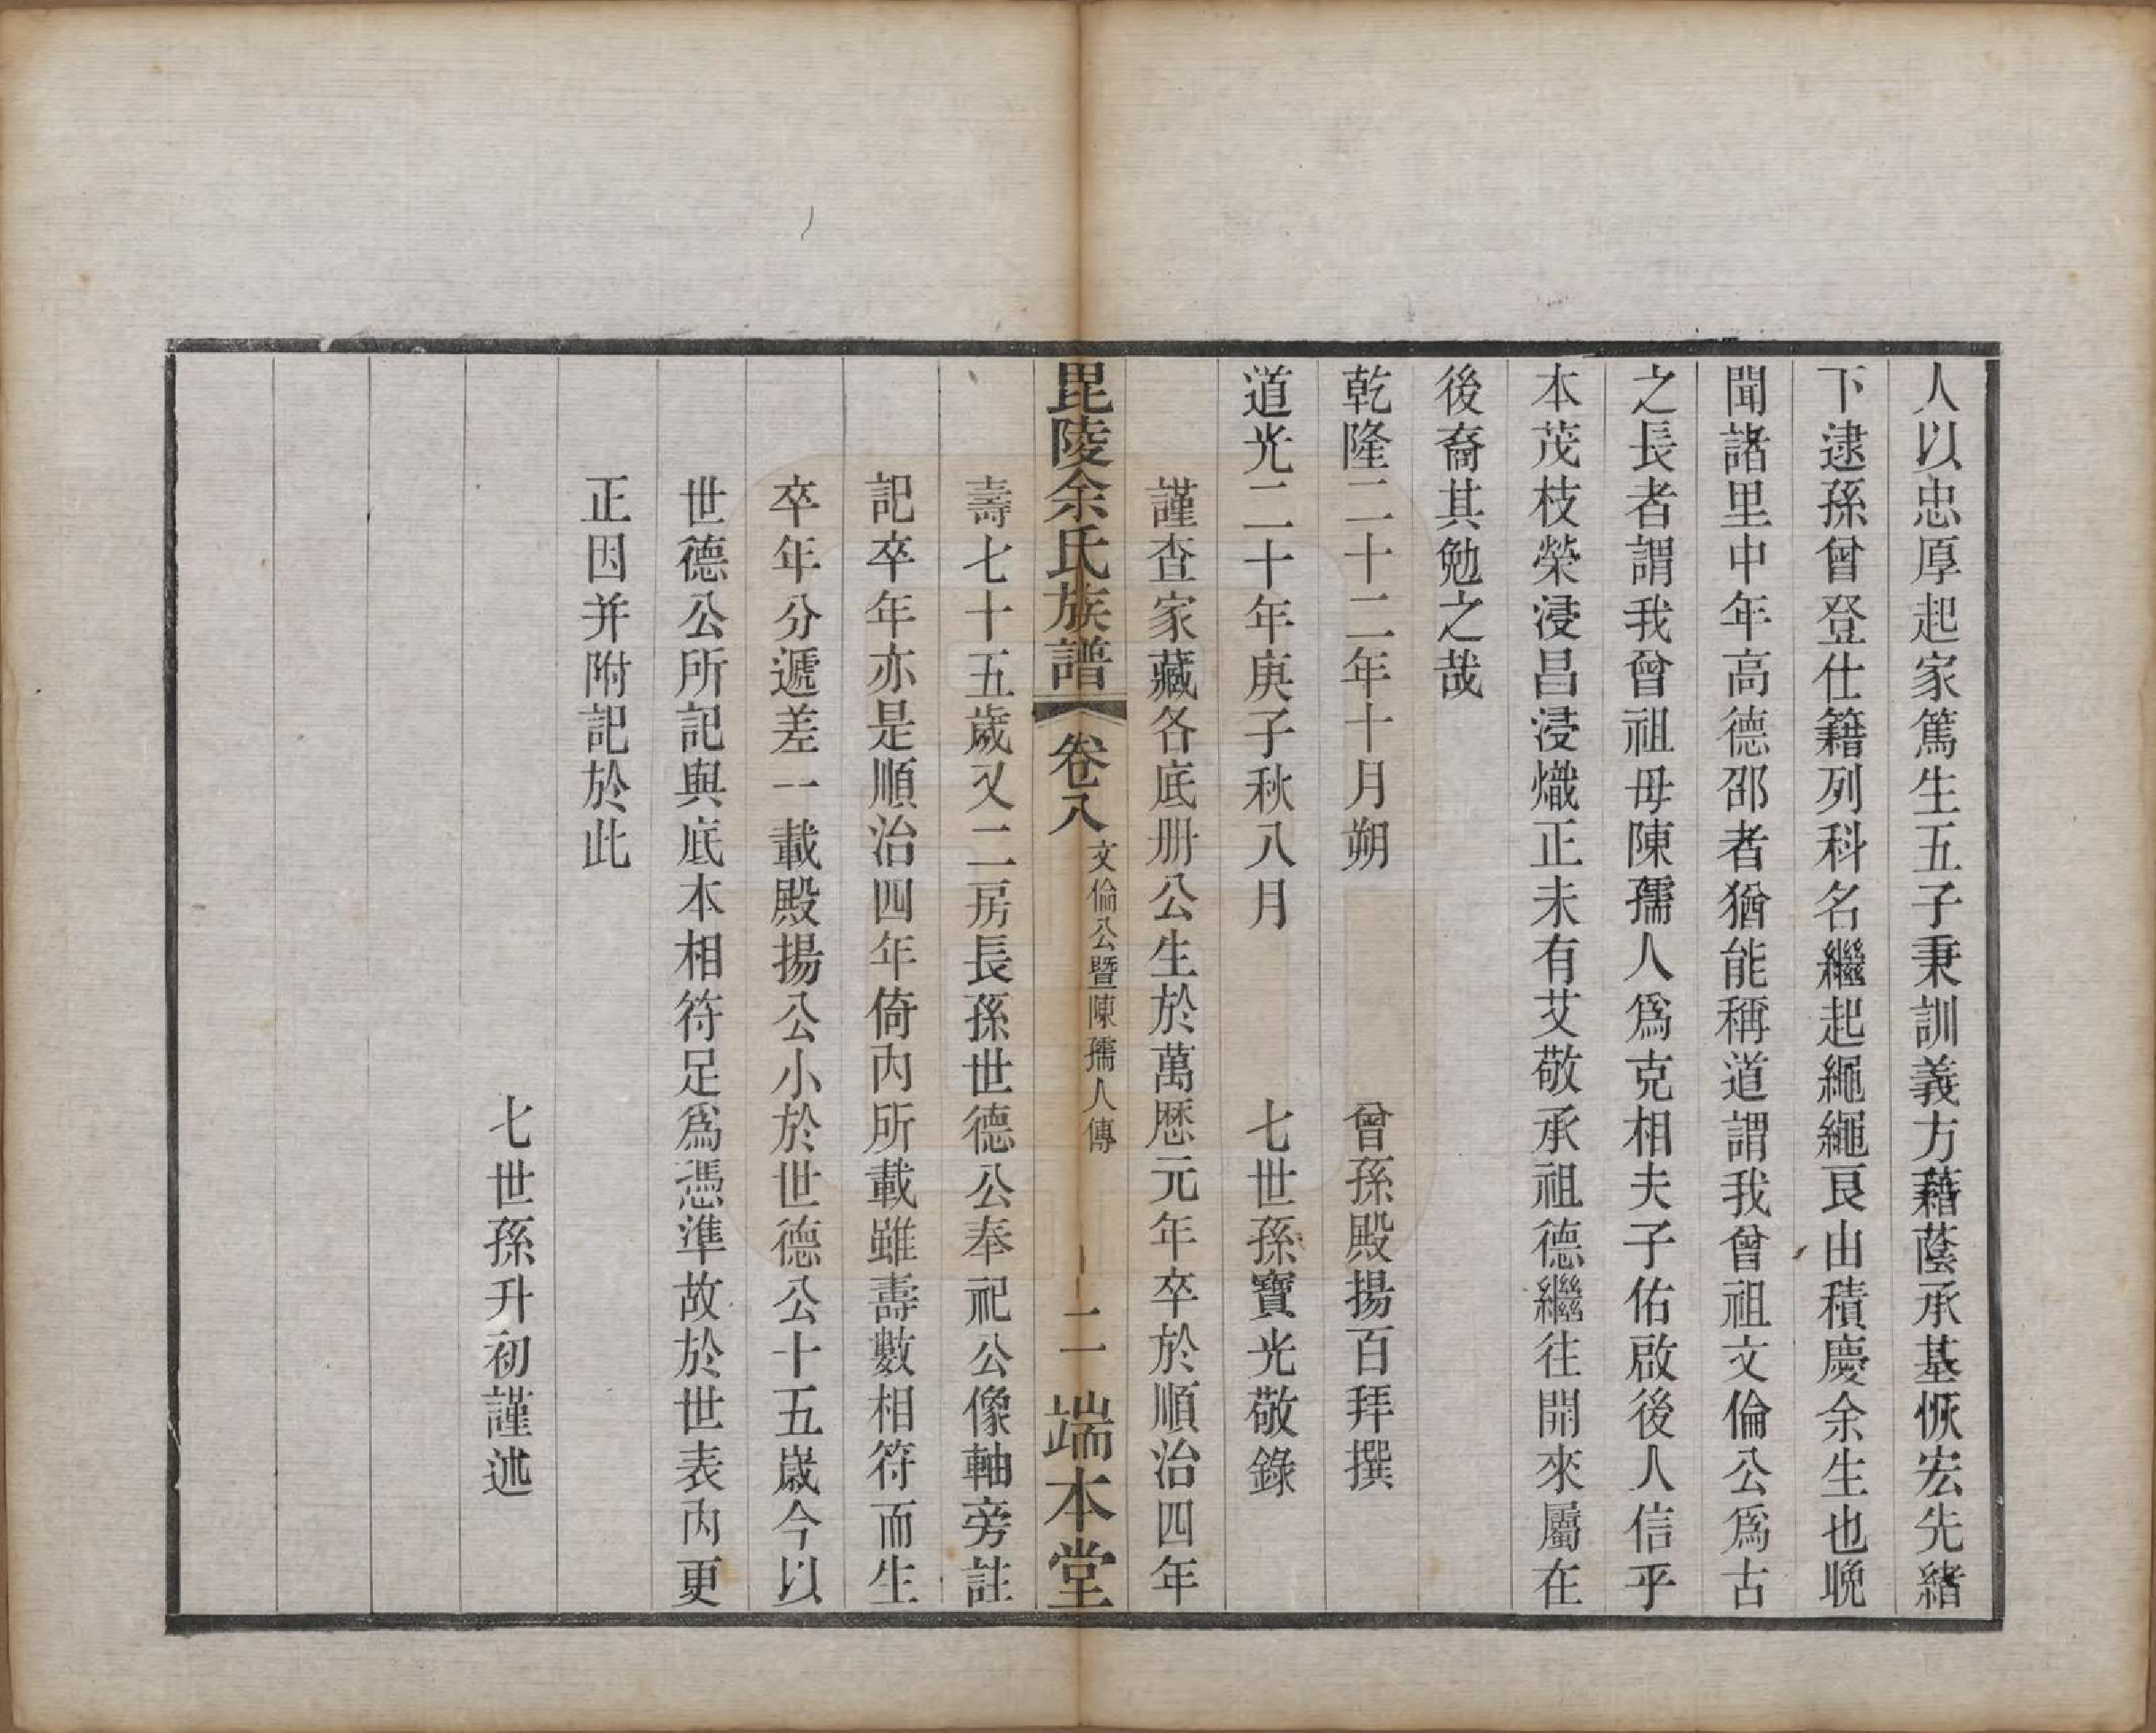 人以忠厚起家篤生五子秉訓義方藉蔭承基恢宏先緒
下逮孫曾登仕籍列科名繼起繩繩良由積慶余生也晚
聞諸里中年高德邵者猶能稱道謂我曾祖文倫公爲古
之長者謂我曾祖母陳孺人爲克相夫子佑啟後人信乎
本茂枝榮浸昌浸熾正未有艾敬承祖德繼往開來屬在
後裔其勉之哉
乾隆二十二年十月朔　曾孫殿揚百拜撰
道光二十年庚子秋八月　七世孫寶光敬錄
謹查家藏各底册公生於萬歷元年卒於順治四年
毘陵余氏族譜　卷八　文倫公暨陳孺人傳　二　端本堂
壽七十五歲又二房長孫世德公奉祀公像軸旁註
記卒年亦是順治四年倚內所載雖壽數相符而生
卒年分遞差一載殿揚公小於世德公十五歲今以
世德公所記與底本相符足爲憑準故於世表內更
正因并附記於此
七世孫升初謹述